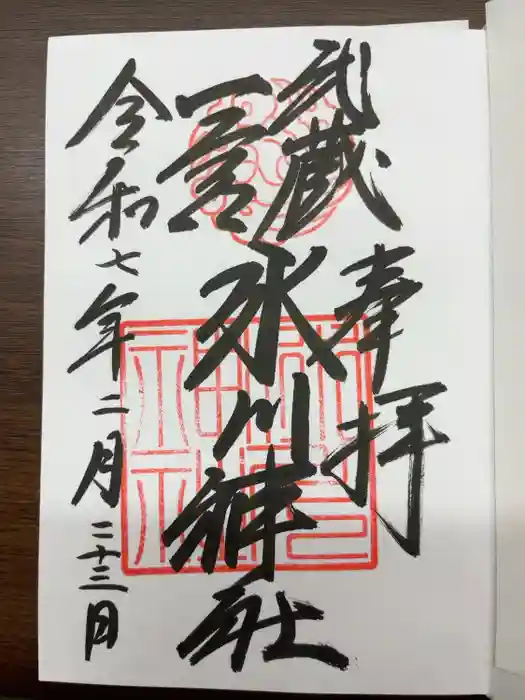 奉拝
武蔵
一宮
氷川神社
令和七年二月二十三日